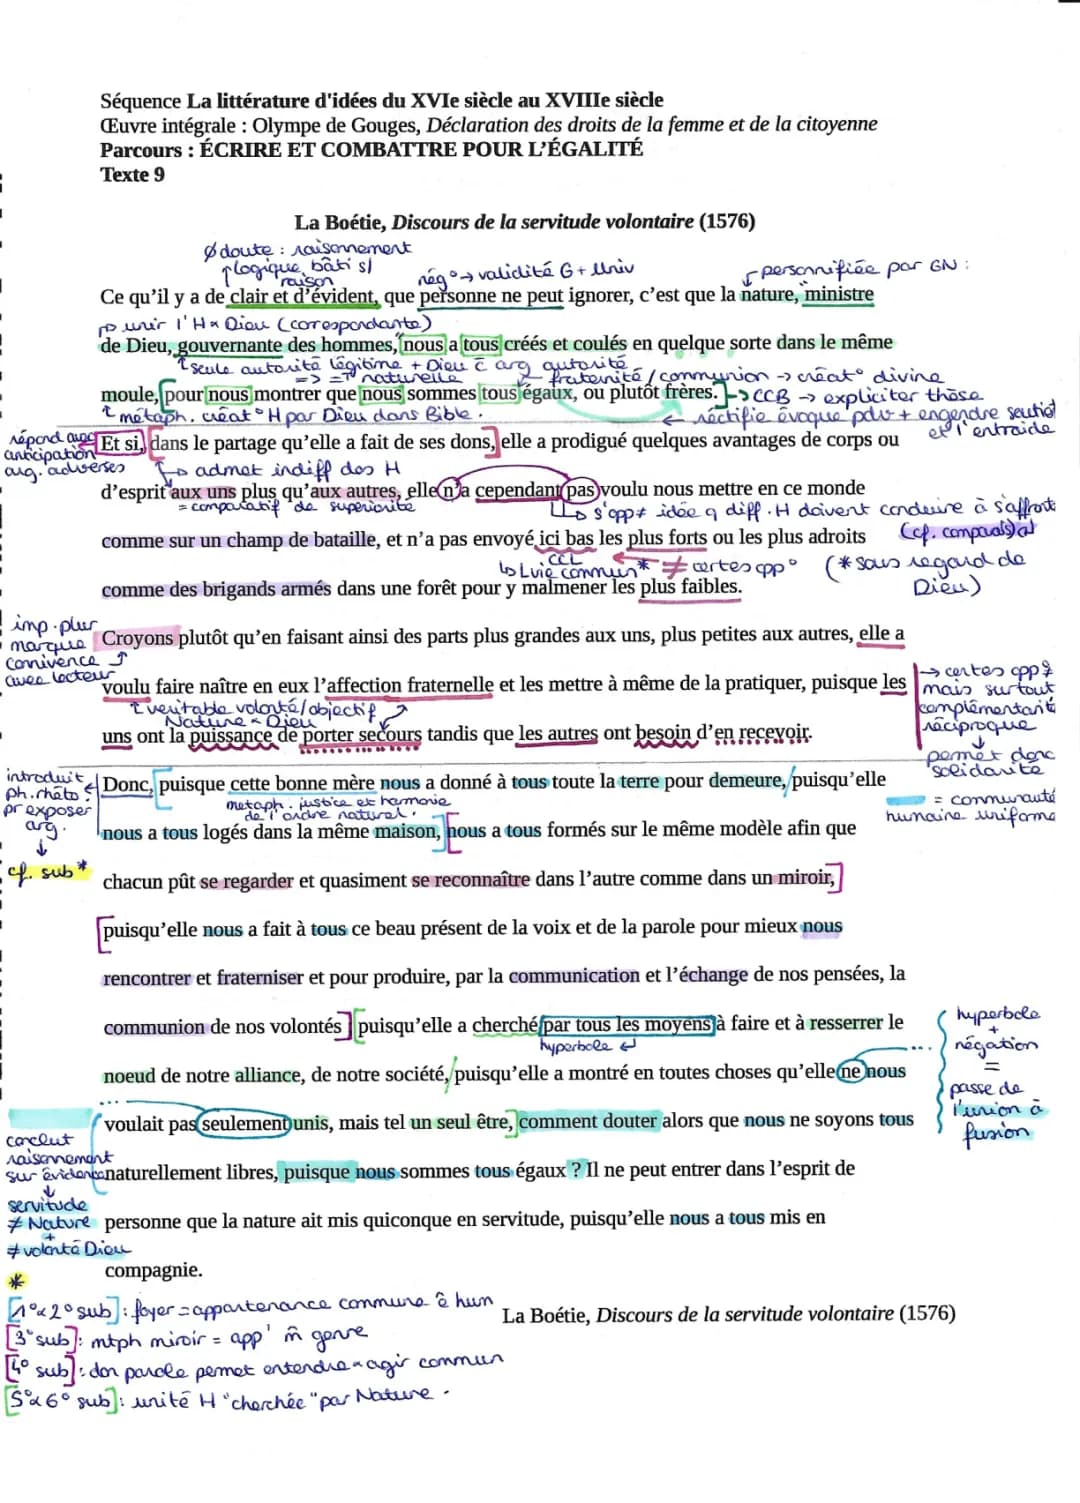 Séquence La littérature d'idées du XVIe siècle au XVIIIe siècle
Œuvre intégrale : Olympe de Gouges, Déclaration des droits de la femme et de la citoyenne
Parcours : ÉCRIRE ET COMBATTRE POUR L'ÉGALITÉ
Texte 9
La Boétie, Discours de la servitude volontaire (1576)
Ø doute : raisonnement
logique, bâti s/
raison
nég° → validité G + Univ
personnifiée par GN :
Ce qu'il y a de clair et d'évident, que personne ne peut ignorer, c'est que la nature, ministre
unir l'H & Dieu (correspondante)
de Dieu, gouvernante des hommes, nous a tous créés et coulés en quelque sorte dans le même
seule autorité légitime + Dieu c̄ arg autorité
=> = naturelle
fraternité / communion → créat° divine
moule, pour nous montrer que nous sommes tous égaux, ou plutôt frères. → CCB → expliciter thèse
métaph. créat° H par Dieu dans Bible.
← rectifie évoque pdv + engendre soutien
et l'entraide
répond avec
anticipation
arg. adverses
Et si, dans le partage qu'elle a fait de ses dons, elle a prodigué quelques avantages de corps ou
admet indiff des H
d'esprit aux uns plus qu'aux autres, elle n'a cependant pas voulu nous mettre en ce monde
= comparatif de supériorité
s'opp ≠ idée q diff. H doivent conduire à s'affront
comme sur un champ de bataille, et n'a pas envoyé ici bas les plus forts ou les plus adroits
(cf. comparais°)
CCL
L vie commun* ≠ certes opp°
(* sous regard de
Dieu)
comme des brigands armés dans une forêt pour y malmener les plus faibles.
imp. plur
marque
connivence
avec lecteur
Croyons plutôt qu'en faisant ainsi des parts plus grandes aux uns, plus petites aux autres, elle a
voulu faire naître en eux l'affection fraternelle et les mettre à même de la pratiquer, puisque les
véritable volonté / objectif
Nature & Dieu
→ certes opp
mais surtout
complémentarité
réciproque
↓
permet donc
solidarité
uns ont la puissance de porter secours tandis que les autres ont besoin d'en recevoir.
introduit
ph. rhéto :
pr exposer
arg.
↓
cf. sub *
Donc, puisque cette bonne mère nous a donné à tous toute la terre pour demeure, puisqu'elle
metaph. justice et harmonie
de l'ordre naturel.
= communauté
humaine uniforme
nous a tous logés dans la même maison, nous a tous formés sur le même modèle afin que
chacun pût se regarder et quasiment se reconnaître dans l'autre comme dans un miroir,
puisqu'elle nous a fait à tous ce beau présent de la voix et de la parole pour mieux nous
rencontrer et fraterniser et pour produire, par la communication et l'échange de nos pensées, la
communion de nos volontés puisqu'elle a cherché par tous les moyens à faire et à resserrer le
hyperbole
noeud de notre alliance, de notre société, puisqu'elle a montré en toutes choses qu'elle ne nous
hyperbole
+
négation
=
passe de
l'union à
fusion
voulait pas seulement unis, mais tel un seul être, comment douter alors que nous ne soyons tous
conclut
raisonnement
sur évidence
↓
servitude
≠ Nature
+
≠ volonté Dieu
naturellement libres, puisque nous sommes tous égaux ? Il ne peut entrer dans l'esprit de
personne que la nature ait mis quiconque en servitude, puisqu'elle nous a tous mis en
compagnie.
*
[1° & 2° sub] : foyer = appartenance commune ê hum
La Boétie, Discours de la servitude volontaire (1576)
[3° sub] : mtph miroir = app' m̂ genre
[4° sub] : don parole permet entendre & agir commun
[5° & 6° sub] : unité H "cherchée" par Nature.